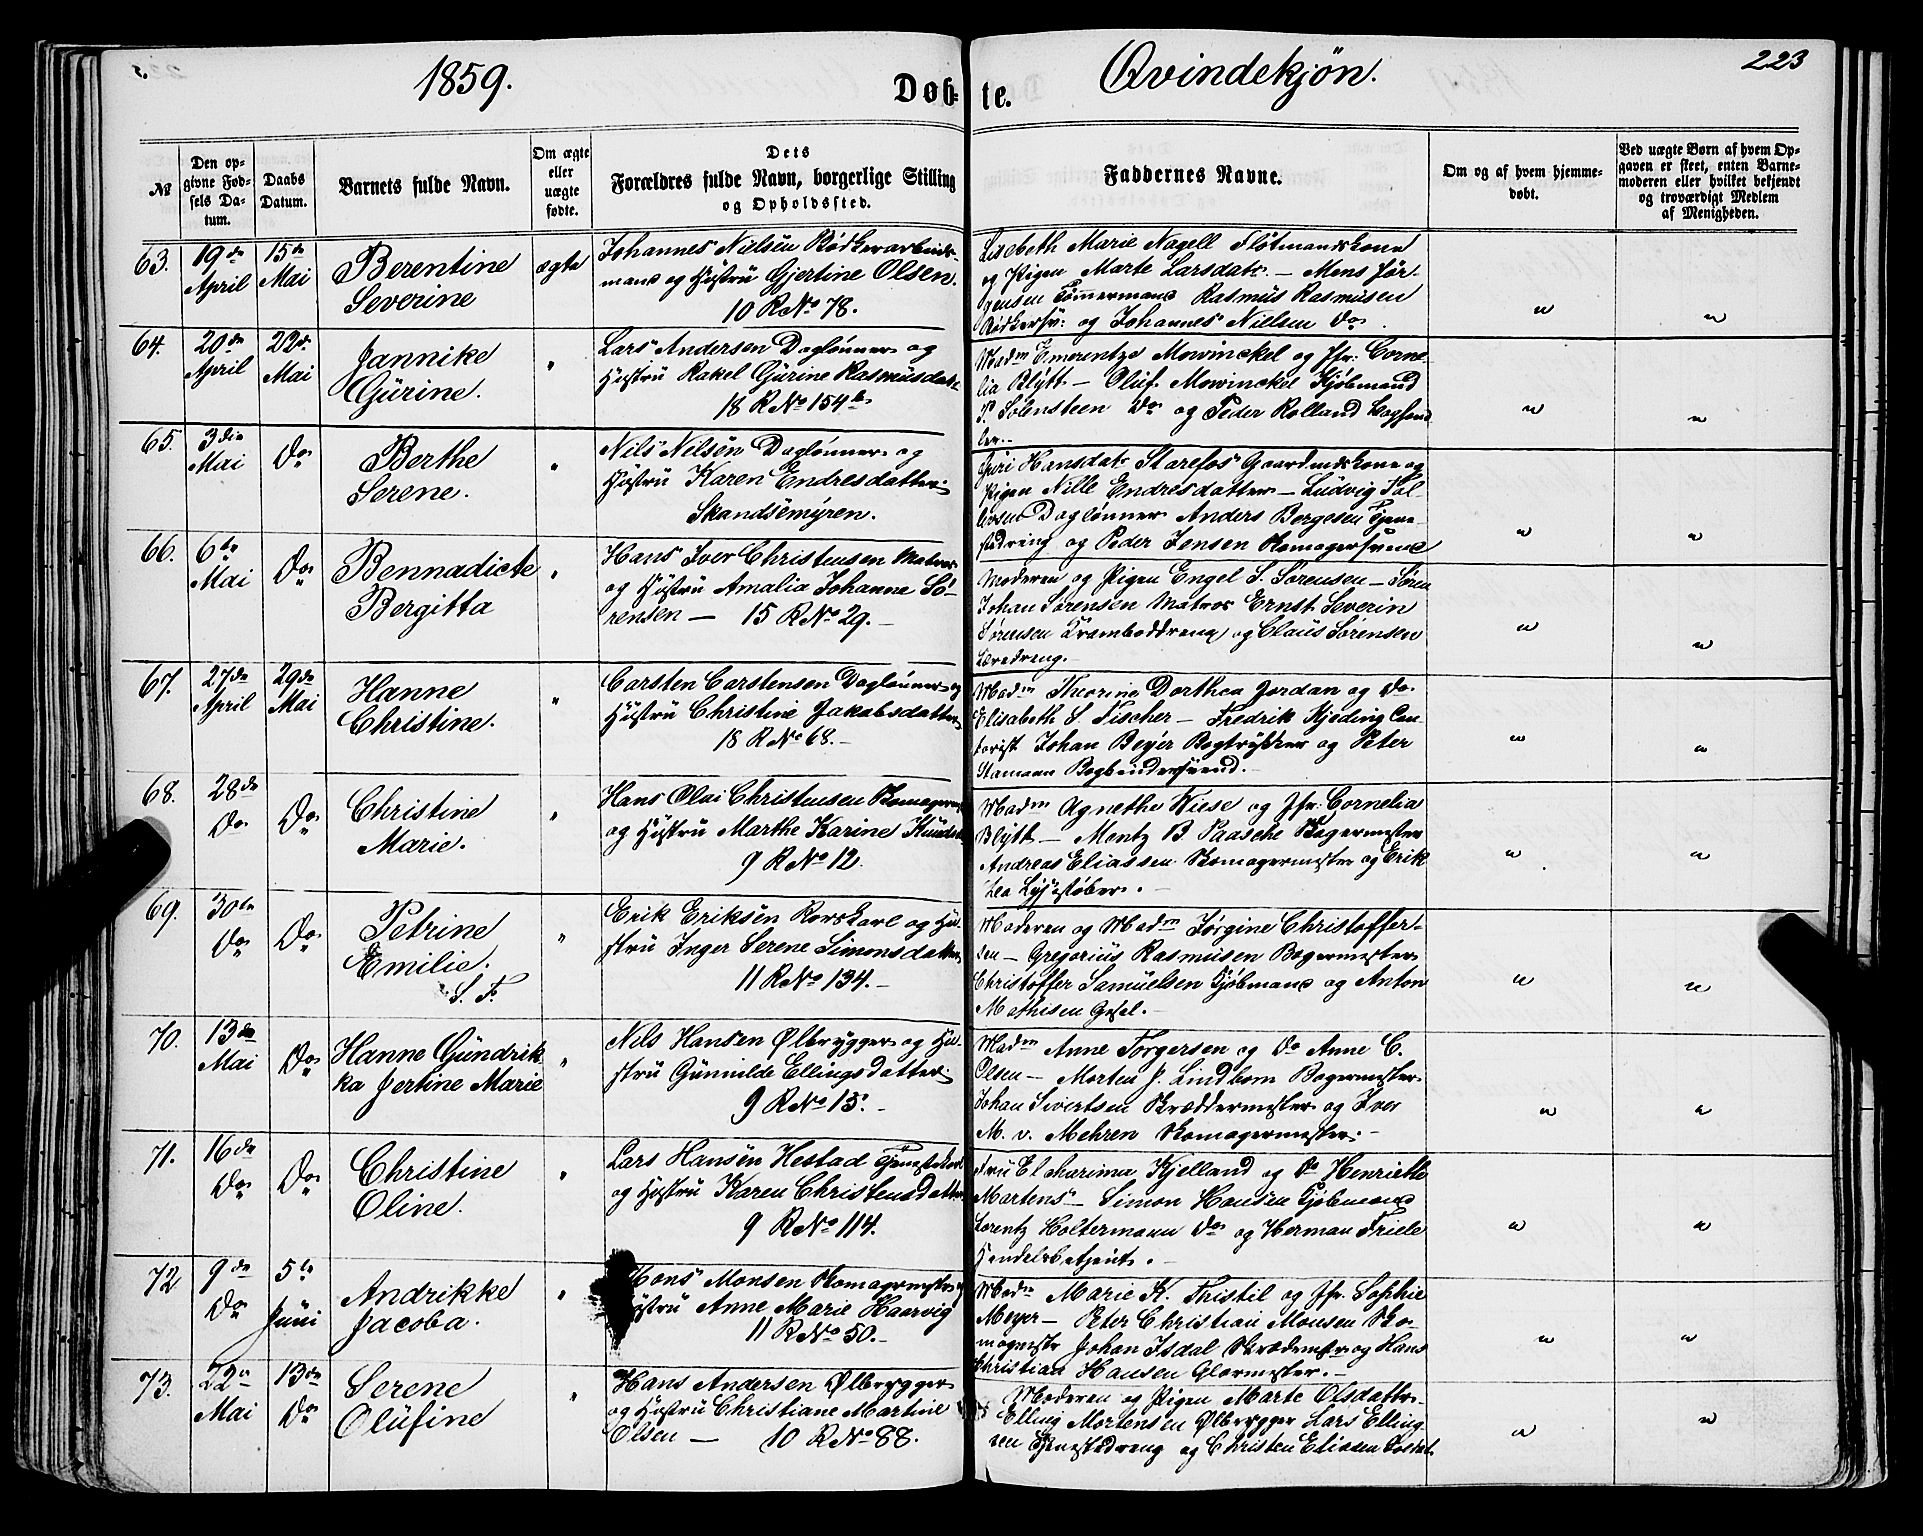 1859.
Døb-
te.
Qvindekjøn.
223
№
Den op-
givne Fød-
sels Da-
tum.
Daabs
Datum.
Barnets fulde Navn.
Om ægte
eller
uægte
fødte.
Dets
Forældres fulde Navn, borgerlige Stilling
og Opholdssted.
Faddernes Navne.
Om og af hvem hjemme-
døbt.
Ved uægte Børn af hvem Op-
gaven er skeet, enten Barne-
moderen eller hvilket bekjendt
og troværdigt Medlem
af Menigheden.
63.
19de
April
15de
Mai
Berentine
Severine
ægte
Johannes Nielsen Bødkerarbeids-
mand og Hüstrü Gjertine Olsen.
10 R No 78.
Lisebeth Marie Nagell Flotmandskone
og Pigen Marte Larsdatr. — Mens Jør-
gensen Tømmermand Rasmüs Rasmüsen
Bødkersv: og Johannes Nielsen Do
"
"
64.
20de
April
22de
Mai
Jannike
Gürine.
"
Lars Andersen Daglønner og
Hüstrü Rakel Gürine Rasmüsdatr
18 R No 154b.
Madm Emerentze Mowinckel og Jfr: Corne-
lia Blÿtt — Olüf Mowinckel Kjøbmand
P. Solensteen Do og Peder Rolland Tog
ler..
"
"
65.
3die
Mai
Do
Berthe
Serene.
"
Nils Nilsen Daglønner og
Hüstrü Karen Endresdatter.
Skandsemÿren.
Güri Hansdatr Starefos Gaardmdskone og
Pigen Nille Endresdatter — Lüdvig Tol-
levsen Daglønner Anders Bergesen Tjene-
stedreng og Peder Jensen Skomagersvend
"
"
66.
6te
Mai
Do
Bennadicte
Bergitta
"
Hans Iver Christensen Matros
og Hüstrü Amalia Johanne Sö-
rensen — 15 R No 29. —
Moderen og Pigen Engel S. Sørensen — Søren
Johan Sørensen Matros Ernst Severin
Sørensen Kramboddreng og Claüs Sørensen
Læredreng.
"
"
67.
27de
April
29de
Mai
Hanne
Christine.
"
Carsten Carstensen Daglønner og
Hüstrü Christine Jakobsdatter,
18 R No 68. —
Madm Theorine Dorthea Jordan og Do
Elisabeth S. Fischer — Fredrik Kjeding Con-
torist Johan Beÿer Bogtrÿkker og Peter
Stamann Bogbindersvend. —
"
"
68.
28de
Do
Do
Christine
Marie.
"
Hans Olai Christensen Skomagerm
og Hüstrü Marthe Karine Knüds
9 R No 12.
Madm Agnethe Wiese og Jfr: Cornelia
Blÿtt — Mentz B. Paasche Bagermester
Andreas Eliassen Skomagermester og Erik
Lea Lÿsestøber. —
"
"
69.
30te
Do
Do
Petrine
Emilie.
S. F.
"
Erik Eriksen Rorskarl og Hü-
strü Inger Serene Simonsdatter,
11 R No 134. —
Moderen og Madm Jørgine Christoffer-
sen — Gregoriüs Rasmüsen Bagermester
Christoffer Samüelsen Kjøbmand og Anton
Mathisen Gesel. —
"
"
70.
13de
Mai
Do
Hanne Gündrik
ka Jertine Marie
"
Nils Hansen Ølbrÿgger og Hü-
strü Günnilde Ellingsdatter.
9 R No 15. —
Madm Anne Torgersen og Do Anne C.
Olsen — Morten J. Lindbom Bagermester
Johan Sivertsen Skræddermester og Iver
M. v. Mehren Skomagermester. —
"
"
71.
16de
Do
Do
Christine
Oline.
"
Lars Hansen Hestad Tjenestekarl
og Hüstrü Karen Christensdatter
9 R No 114.
Frü Elcharima Kjelland og Do Henriette
Martens — Simon Hansen Kjøbmand
Lorentz Holtermann Do og Herman Friele
Handelsbetjent. —
"
"
72
9de
Do
5te
Jüni
Andrikke
Jacoba.
"
Mons Monsen Skomagermester og
Hüstrü Anne Marie Haarvig
11 R No 50. —
Madm Marie K. Tristil og Jfr. Sophie
Meyer — Peter Christian Monsen Sko-
magerestr Johan Isdal Skrædemstr og Hans
Christian Hansen Glarmester. —
"
"
73.
22de
Mai
13de
Do
Serene
Olüfine
"
Hans Andersen Ølbrygger
og Hüstrü Christiane Martine
Olsen — 10 R No 88.
Moderen og Pigen Marte Olsdatter
Elling Mortensen Ølbrygger Lars Elling-
sen Tjenestedreng og Christen Eliasen Soldat
"
"